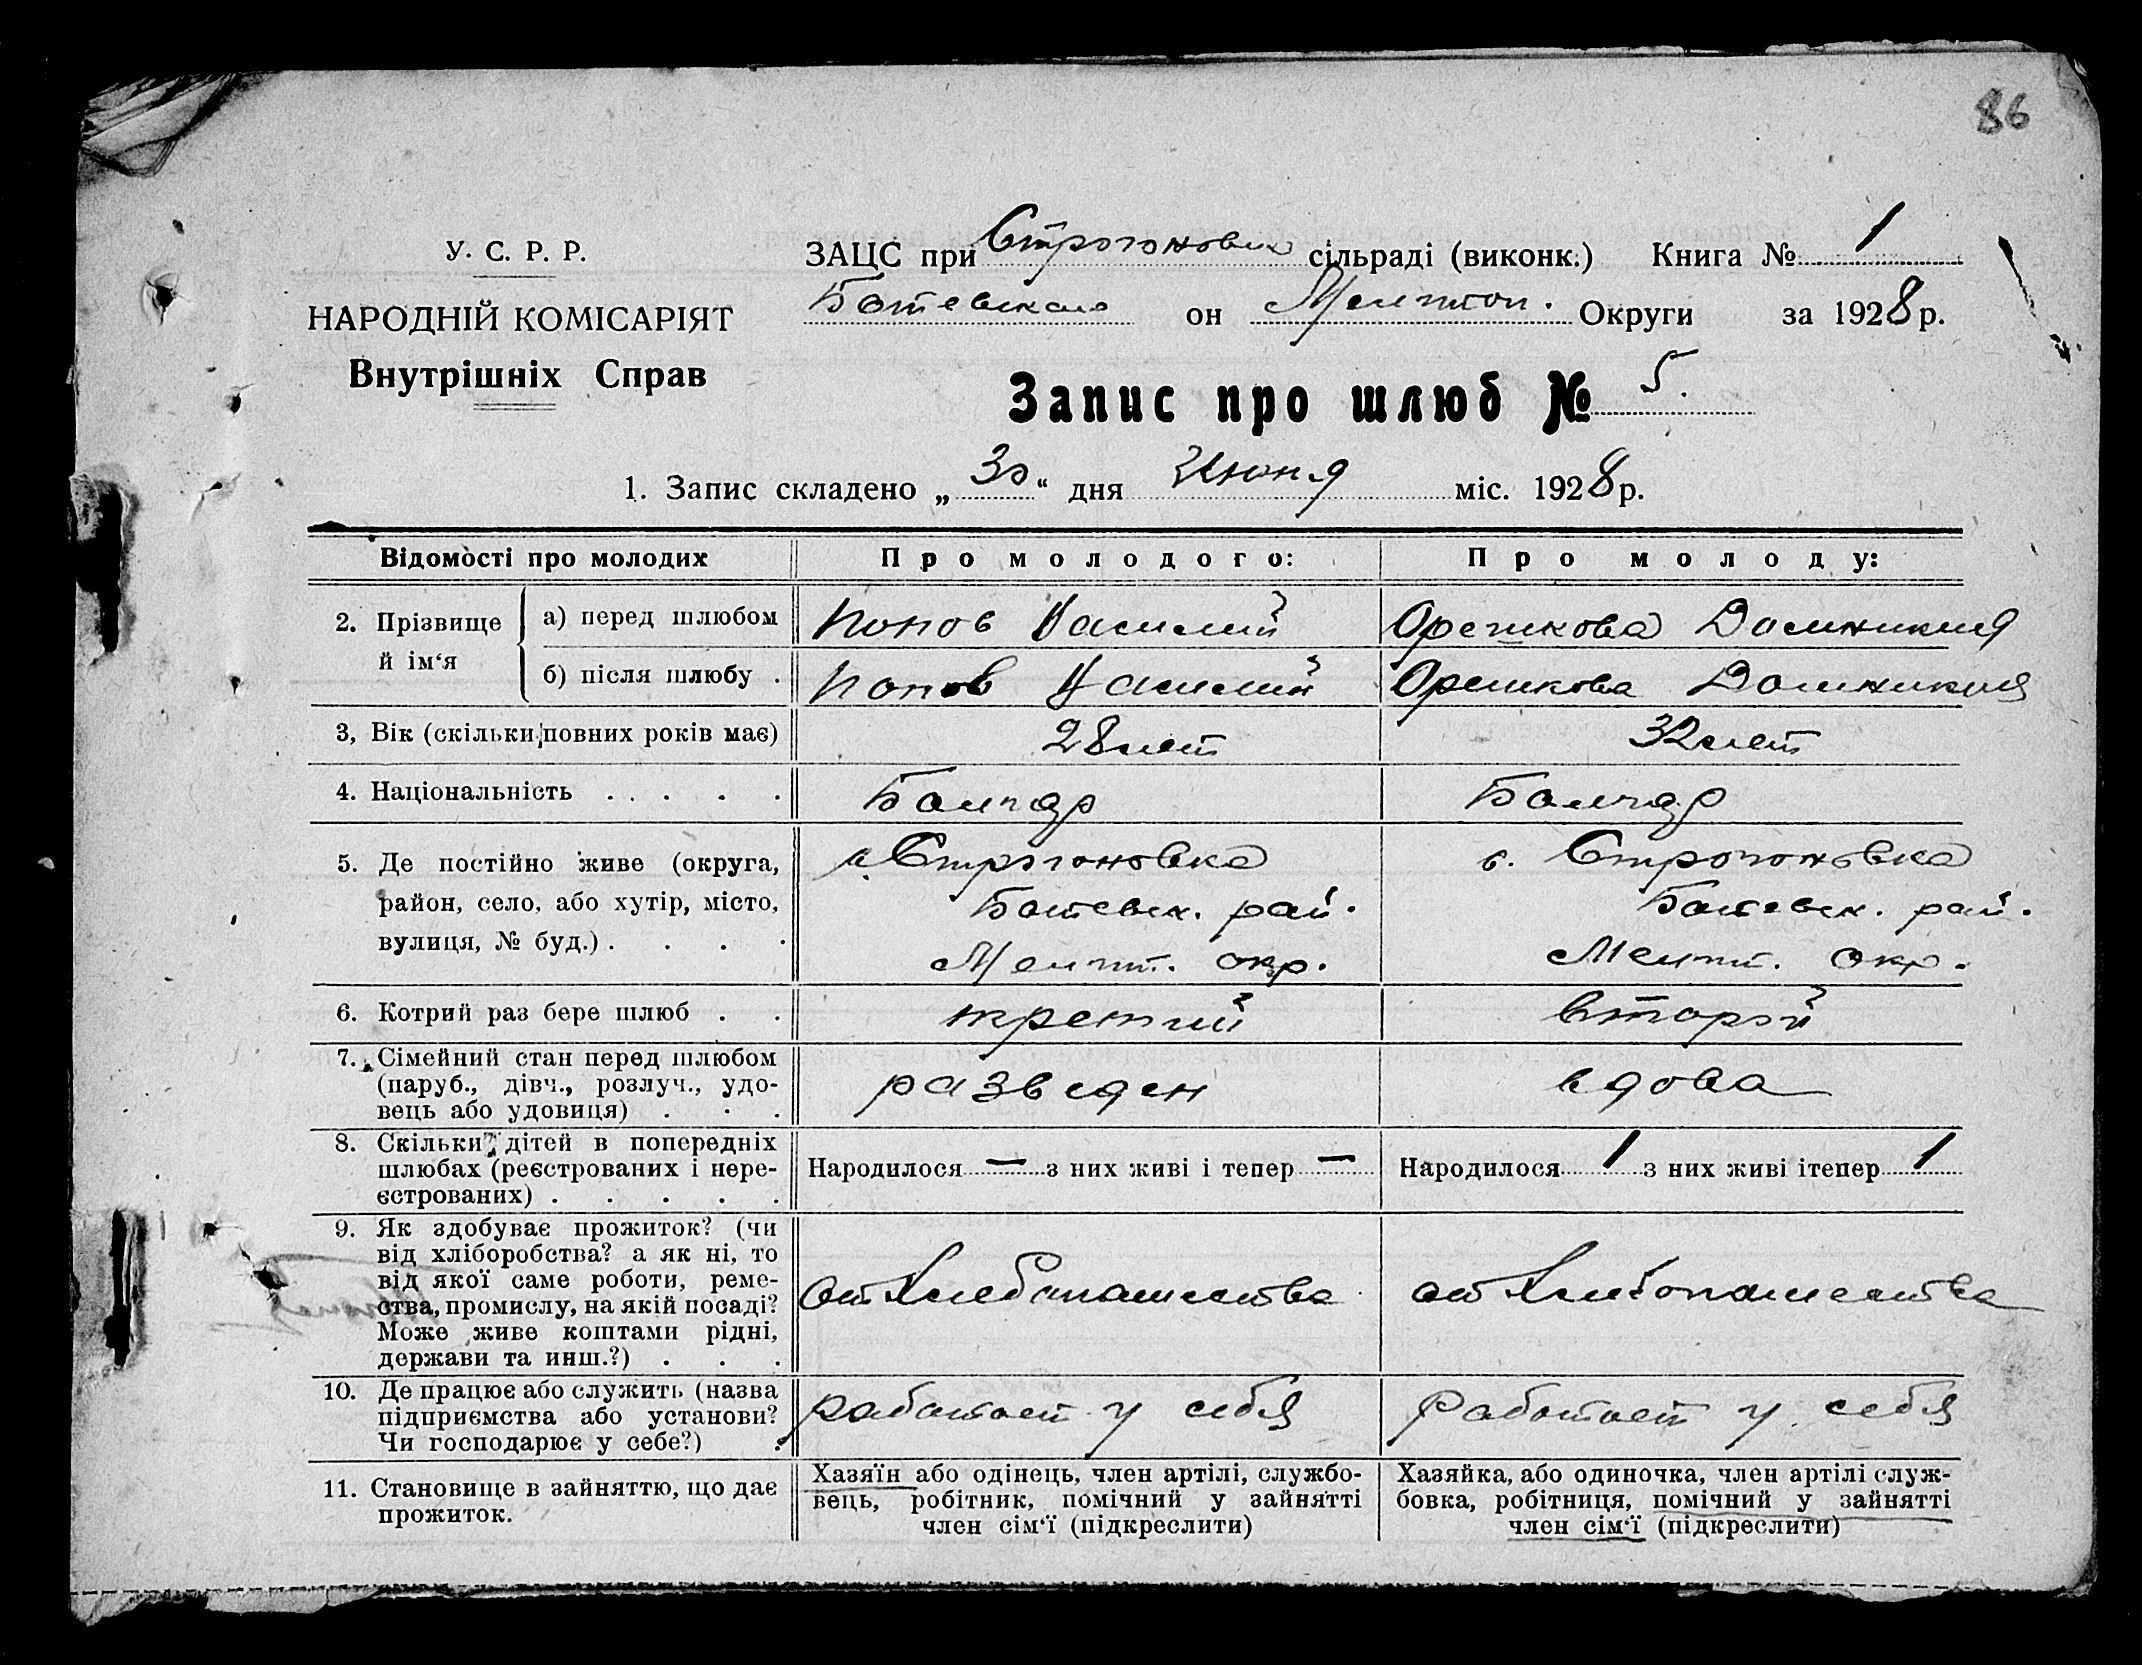 86
У. С. Р. Р.
НАРОДНІЙ КОМІСАРІЯТ
Внутрішніх Справ
ЗАЦС при Строгоновск сільраді (виконк.) Книга № 1
Ботевского он Мелитоп. Округи за 1928 р.
Запис про шлюб № 5.
1. Запис складено „30“ дня Июня міс. 1928 р.
Відомості про молодих Про молодого: Про молоду:
2. Прізвище й ім‘я
а) перед шлюбом Попов Василий Орешкова Домникия
б) після шлюбу . Попов Василий Орешкова Домникия
3, Вік (скільки повних років має) 28 лет 32 лет
4. Національність . . . . . Болгар Болгар
5. Де постійно живе (округа, с. Строгоновка с. Строгоновка
район, село, або хутір, місто, Ботевск. рай. Ботевск. рай.
вулиця, № буд.) . . . . Мелит. окр. Мелит. окр.
6. Котрий раз бере шлюб . . третий второй
7. Сімейний стан перед шлюбом
(паруб., дівч., розлуч., удо- разведен вдова
вець або удовиця) . . .
8. Скільки дітей в попередніх
шлюбах (реєстрованих і нере- Народилося — з них живі і тепер — Народилося 1 з них живі ітепер 1
єстрованих) . . . . .
9. Як здобуває прожиток? (чи
від хліборобства? а як ні, то
від якої саме роботи, реме- от Хлебопашества от Хлебопашества
ства, промислу, на якій посаді?
Може живе коштами рідні,
держави та инш.?) . . .
10. Де працює або служить (назва
підприємства або установи? работает у себя Работает у себя
Чи господарює у себе?) .
11. Становище в зайняттю, що дає
прожиток.
Хазяїн або одінець, член артілі, службо-
вець, робітник, помічний у зайнятті
член сім‘ї (підкреслити)
Хазяйка, або одиночка, член артілі служ-
бовка, робітниця, помічний у зайнятті
член сім‘ї (підкреслити)